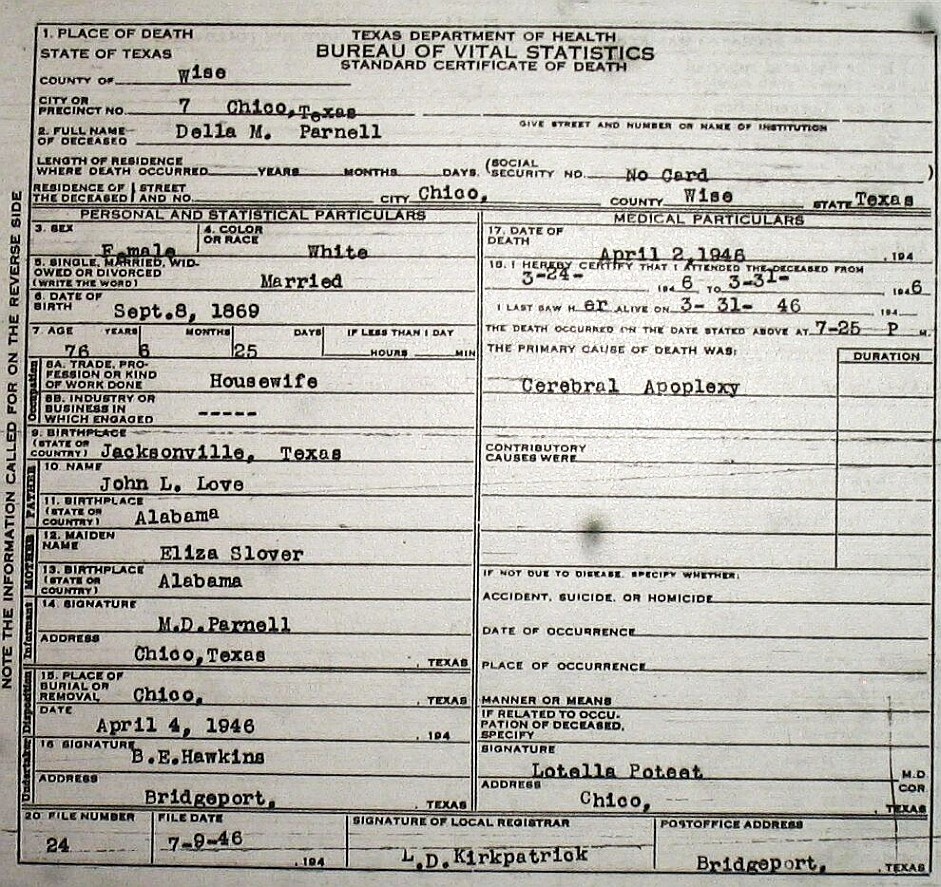 TEXAS DEPARTMENT OF HEALTH
BUREAU OF VITAL STATISTICS
STANDARD CERTIFICATE OF DEATH
1. PLACE OF DEATH
STATE OF TEXAS
COUNTY OF Wise
CITY OR PRECINCT NO. 7 Chico, Texas
GIVE STREET AND NUMBER OR NAME OF INSTITUTION
2. FULL NAME OF DECEASED Della M. Parnell
LENGTH OF RESIDENCE WHERE DEATH OCCURRED YEARS MONTHS DAYS. (SOCIAL SECURITY NO. No Card )
RESIDENCE OF THE DECEASED STREET AND NO. CITY Chico, COUNTY Wise STATE Texas
NOTE THE INFORMATION CALLED FOR ON THE REVERSE SIDE
PERSONAL AND STATISTICAL PARTICULARS
3. SEX Female 4. COLOR OR RACE White
5. SINGLE, MARRIED, WIDOWED OR DIVORCED (WRITE THE WORD) Married
6. DATE OF BIRTH Sept.8, 1869
7. AGE YEARS MONTHS DAYS IF LESS THAN 1 DAY
76 6 25 HOURS MIN
Occupation
8A. TRADE, PROFESSION OR KIND OF WORK DONE Housewife
8B. INDUSTRY OR BUSINESS IN WHICH ENGAGED -----
9. BIRTHPLACE (STATE OR COUNTRY) Jacksonville, Texas
FATHER
10. NAME John L. Love
11. BIRTHPLACE (STATE OR COUNTRY) Alabama
MOTHER
12. MAIDEN NAME Eliza Slover
13. BIRTHPLACE (STATE OR COUNTRY) Alabama
Informant
14. SIGNATURE M.D.Parnell
ADDRESS Chico,Texas , TEXAS
Disposition
15. PLACE OF BURIAL OR REMOVAL Chico, , TEXAS
DATE April 4, 1946 , 194
Undertaker
16 SIGNATURE B.E.Hawkins
ADDRESS Bridgeport, , TEXAS
MEDICAL PARTICULARS
17. DATE OF DEATH April 2,1946 , 194
18. I HEREBY CERTIFY THAT I ATTENDED THE DECEASED FROM
3-24- 194 6 TO 3-31- , 194 6
I LAST SAW H er ALIVE ON 3- 31- 46 194
THE DEATH OCCURRED ON THE DATE STATED ABOVE AT 7-25 P M.
THE PRIMARY CAUSE OF DEATH WAS: DURATION
Cerebral Apoplexy
CONTRIBUTORY CAUSES WERE
IF NOT DUE TO DISEASE, SPECIFY WHETHER:
ACCIDENT, SUICIDE, OR HOMICIDE
DATE OF OCCURRENCE
PLACE OF OCCURRENCE
MANNER OR MEANS
IF RELATED TO OCCUPATION OF DECEASED, SPECIFY
SIGNATURE Lotella Poteet M.D. COR.
ADDRESS Chico, , TEXAS
20. FILE NUMBER 24
FILE DATE 7-9-46 , 194
SIGNATURE OF LOCAL REGISTRAR L.D.Kirkpatrick
POSTOFFICE ADDRESS Bridgeport, , TEXAS